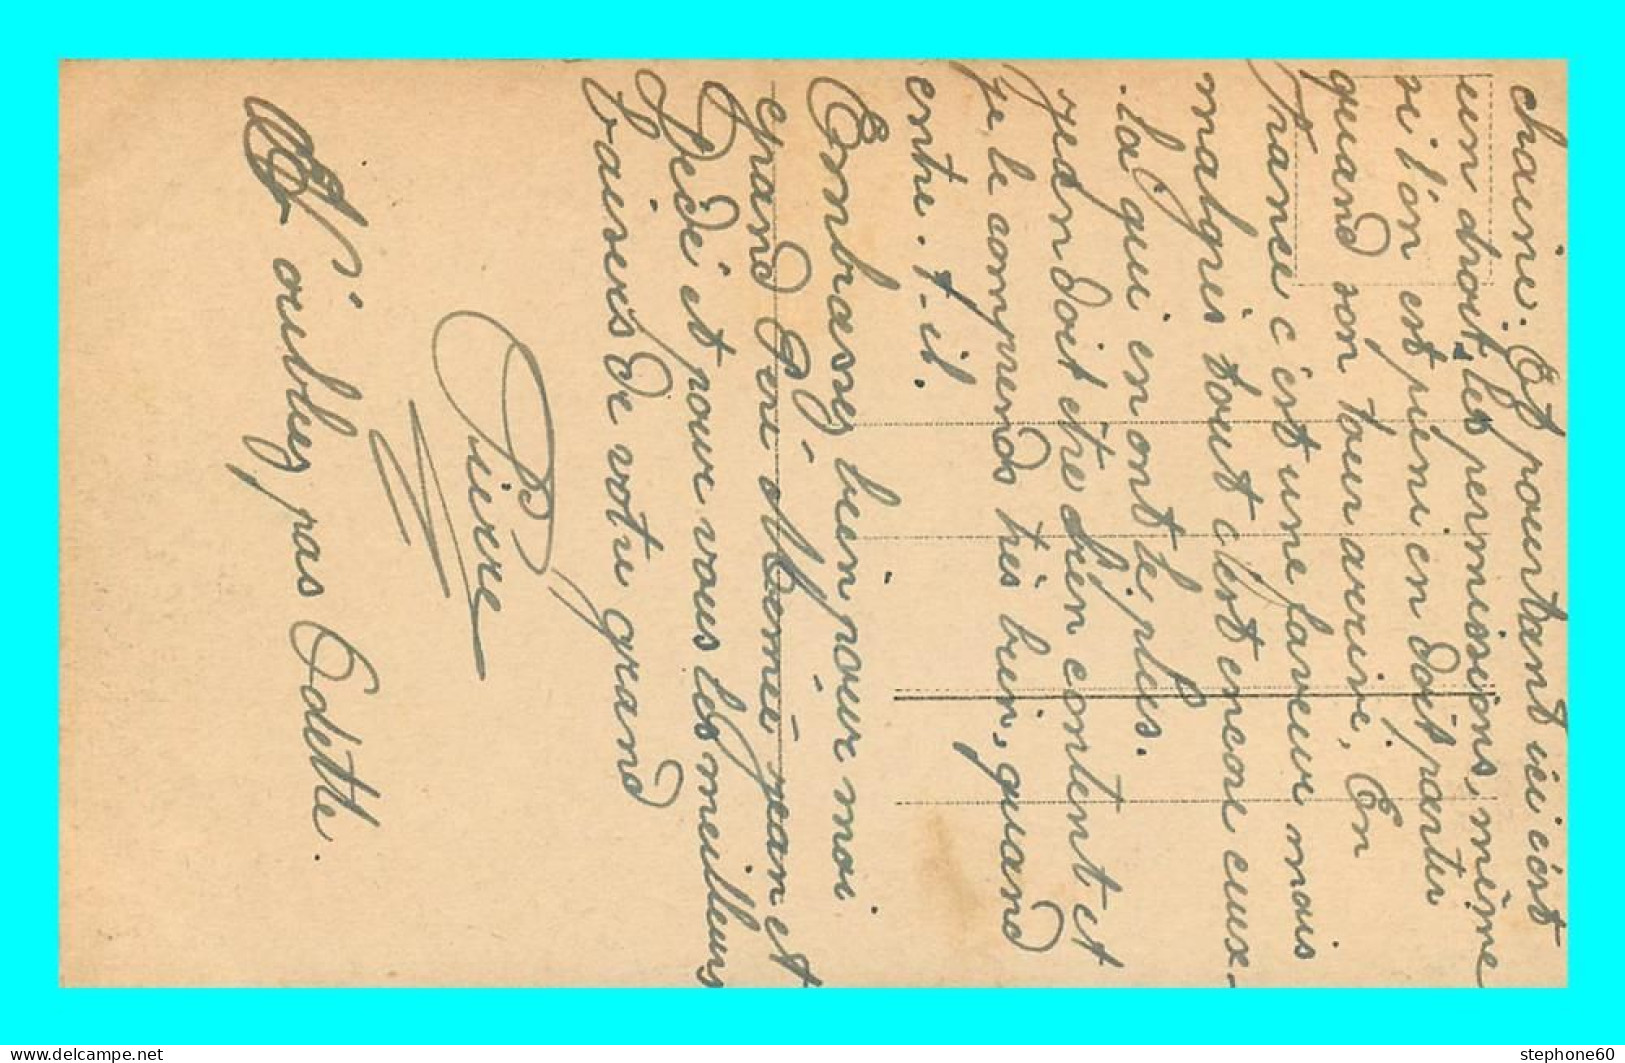 chaine. Et pourtant ici c'est
un droit, les permissions, même
si l'on est puni on doit partir
quand son tour arrive, En
France c'est une faveur mais
malgrés tout c'est encore ceux-
la qui en ont le plus.
Jean doit etre bien content et
je le comprends très bien, quand
entre-t-il.
Embrassez bien pour moi
grand Père Mémé Jean et
Dédé et pour vous les meilleurs
baisers de votre grand
Pierre
N'oubliez pas Odette.
stephone60